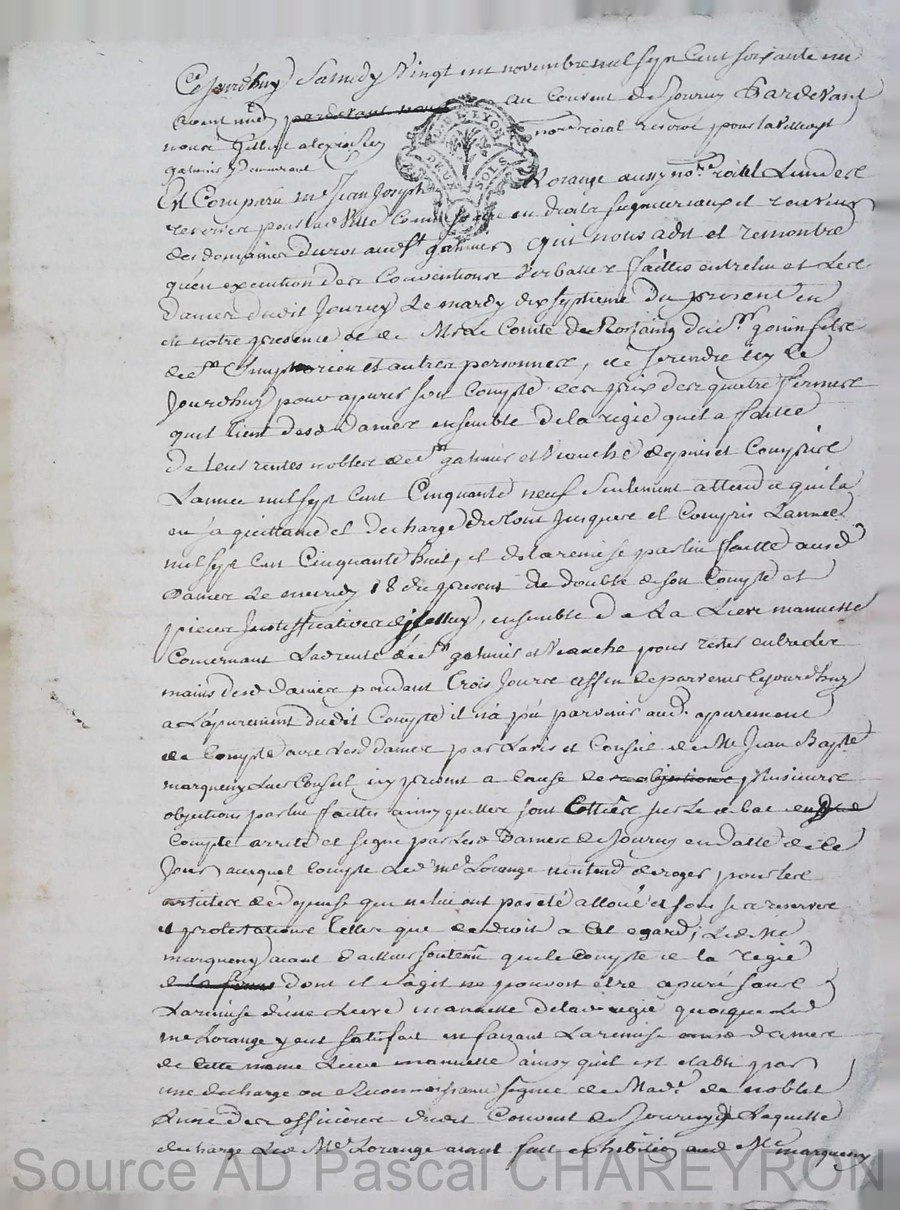 Ce jourdhuy Samedy Vingt un novembre mil sept Cent soixante un
avant midy pardevant nous au Couvent de Jourcey Pardevant
nous notre roial reservé pour la ville de st
galmier
DE LYON
DEUX SOLS
Est Comparu me Jean Joseph Lorange aussy nore roial
reservé pour lad Ville Commissaire en droits seigneuriaux et
des domaines du roi aud st galmier qui nous a dit et remontré
quen execution des Conventions Verballes faittes entre luy et les
Dames dudit Jourcey Le mardy dix septieme du present en
notre presence et de Mr le Comte De Rostaing du sr gonin
de st Simphorien et autres personnes, de se rendre icy le
Jourdhuy pour apurer son Compte des prix des quatre fermes
quil tient desd dames ensemble de la regie quil a faitte
De leurs rentes nobles de st galmier et depuis et Compris
Lannée mil sept Cent Cinquante neuf seulement attendu quil a
en sa quittance et decharge du tout jusques et Compris Lannée
mil sept Cent Cinquante huit, et de la remise par luy faitte ausd
Dames Le mercredy 18 du present de double de son Compte et
pieces Justifficatives dicelluy, ensemble de La Lieve manuelle
Concernant La rente de st galmier et pour rester entre les
mains desd Dames pendant trois Jours affin de parvenir Cejourdhuy
a Lapurement dudit Compte il na pu parvenir aud apurement
de Compte avec Lesd dames par Lavis et Conseil de Me Jean Bapte
marqueny Leur Conseil icy present a Cause de plusieurs
objections par luy faittes ainsy quelles sont Cottées sur le a bas
Compte arreté et signé par Lesd Dames de Jourcey en datte de ce
Jour auquel Compte Led me Lorange nentend deroger pour les
articles de depense qui ne luy ont pas été alloué et sous ses reserves
et protestations telles que de droit a Cet egard, Led Me
marqueny aiant dailleurs soutenu que le Compte de la regie
de la ferme dont il sagit ne pouvoit etre apuré sans
La remise dune Lieve manuelle de lad regie quoique Led
me Lorange y eut satisfait en faisant La remise ausd dames
de Cette meme Lieve manuelle ainsy quil est etabli par
une decharge ou reconnoissance signée de Made de noblet
Lune des officieres dudit Couvent de Jourcey Laquelle
decharge Led Me Lorange aiant fait exhibition aud Me marqueny
Source AD Pascal CHAREYRON